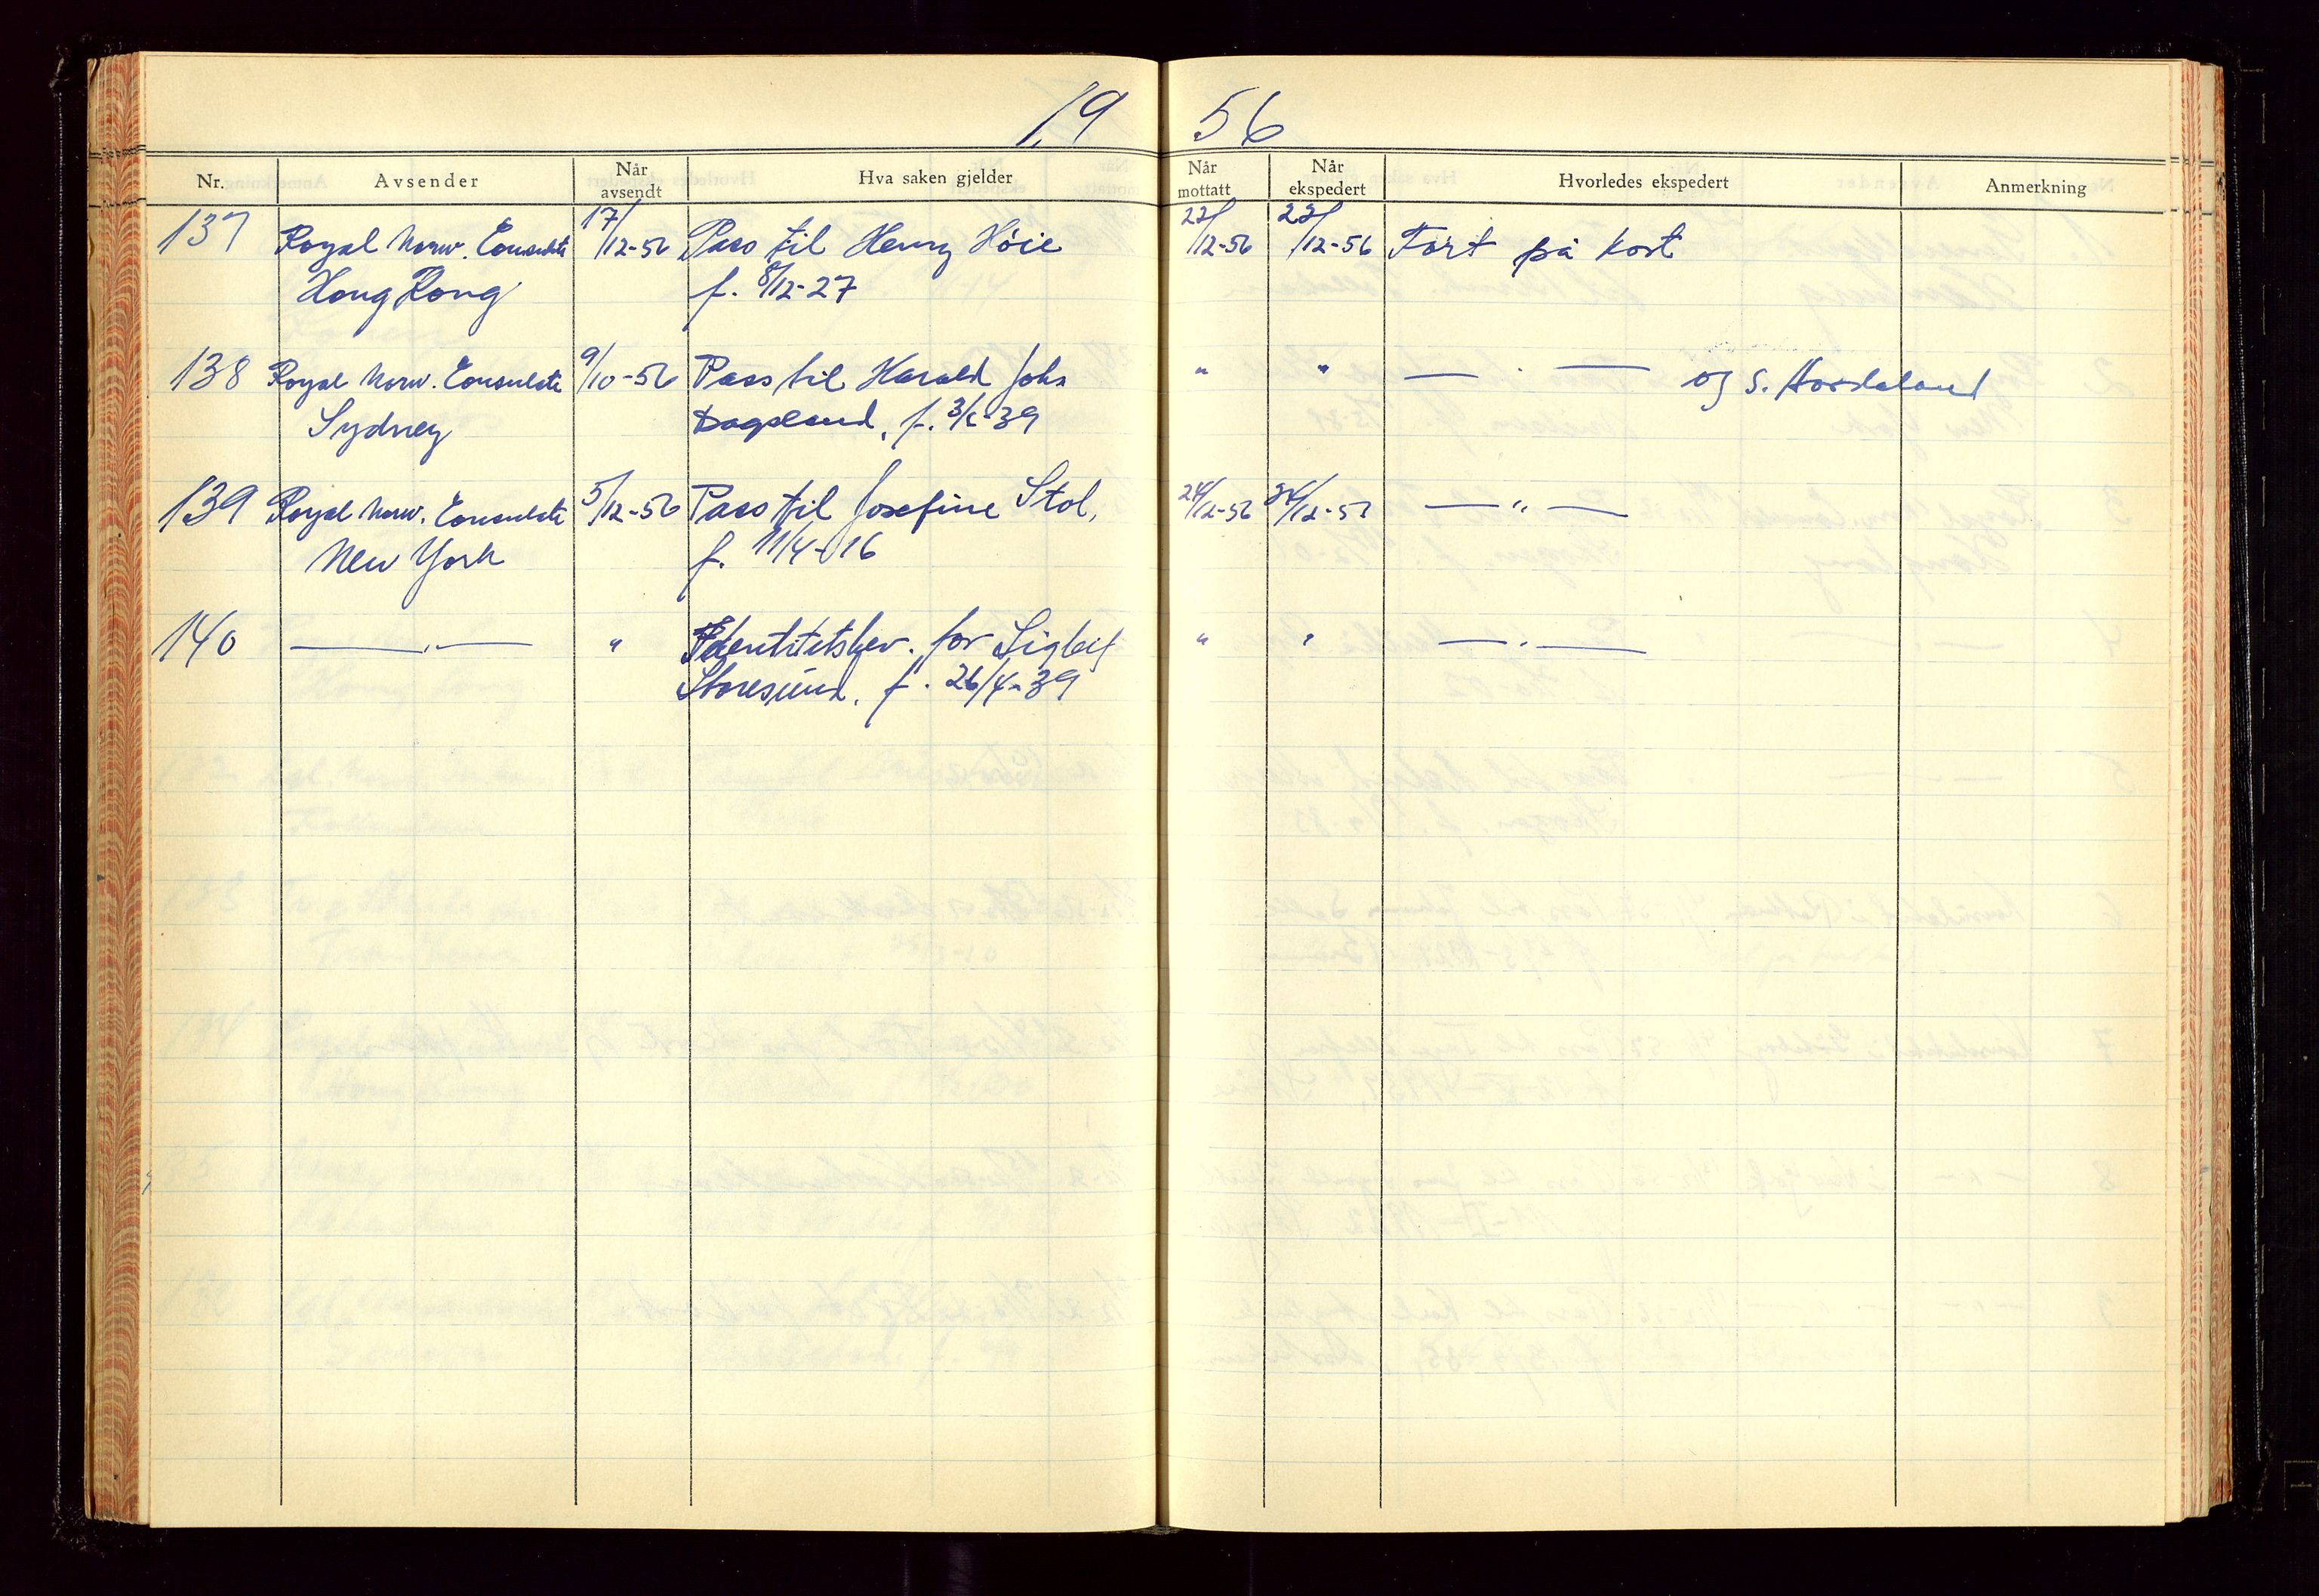 19 56
Nr. Avsender Når avsendt Hva saken gjelder Når mottatt Når ekspedert Hvorledes ekspedert Anmerkning
137 Royal Norw. Consulate 17/12-56 Pass til Henry Höie 22/12-56 22/12-56 Ført på kort
Hong Kong f. 8/12-27
138 Royal Norw. Consulate 9/10-56 Pass til Harald Johs " " — " — og S. Hordaland
Sydney Dagsland, f. 3/2-39
139 Royal Norw. Consulate 5/12-56 Pass til Josefine Stol, 24/12-56 24/12-57 — " —
New York f. 11/4-16
140 — " — " Identitetsbev. for Sigleif " " — " —
Storesund, f. 26/4-39